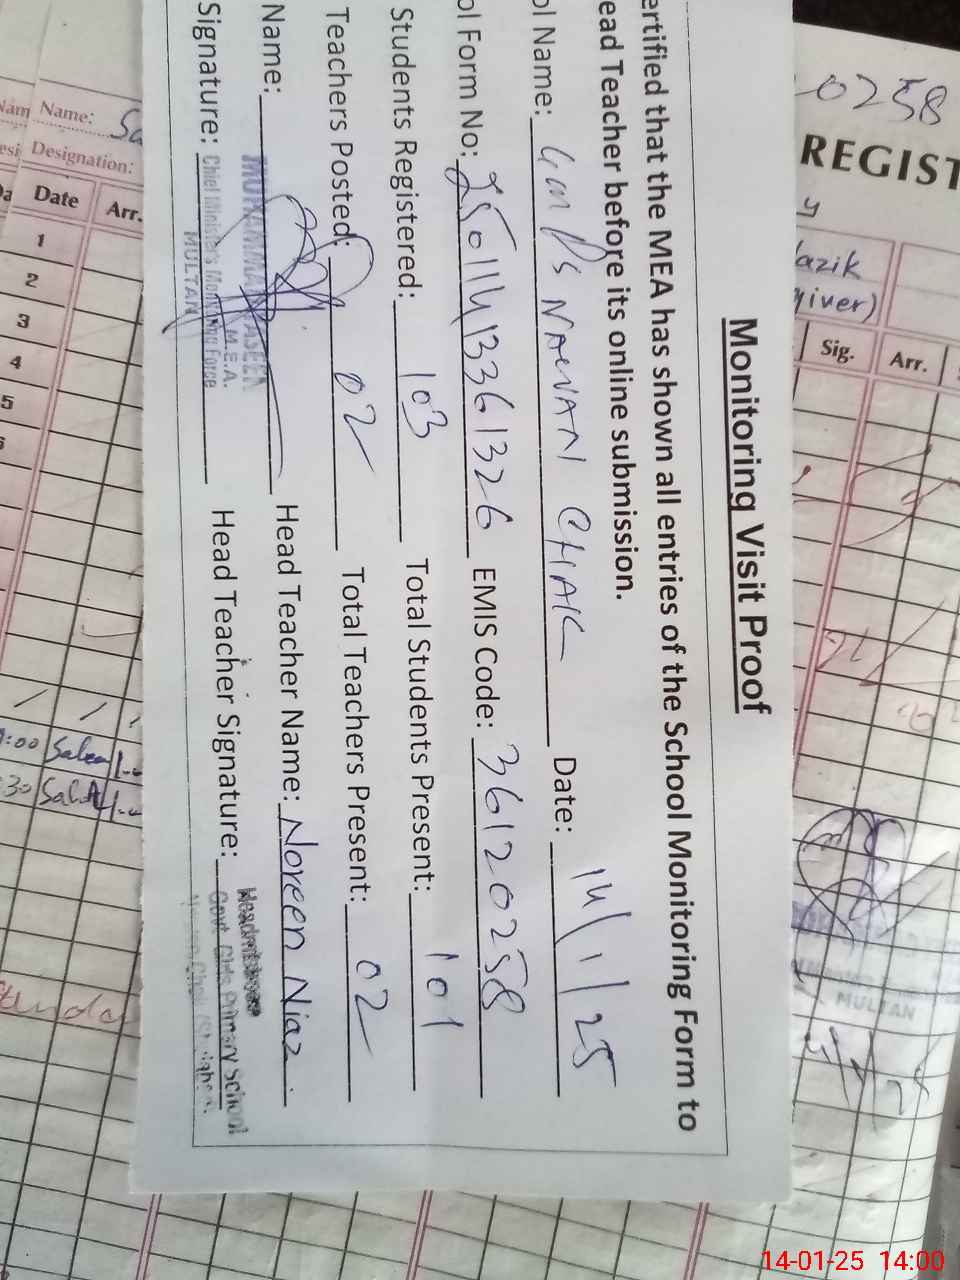 Monitoring Visit Proof
ertified that the MEA has shown all entries of the School Monitoring Form to
ead Teacher before its online submission.
ol Name: NAWAN CHAK Date: 14/1/25
ol Form No: EMIS Code: 36120258
Students Registered: 103 Total Students Present: 101
Teachers Posted: 02 Total Teachers Present: 02
Name: Head Teacher Name: Noreen Niaz
Signature: Head Teacher Signature:
MUHAMMAD
M.E.A.
Chief Minister's Monitoring Force
MULTAN
Headmistress
Govt. Girls Primary School
0258
REGIST
y
azik
giver)
Sig. Arr.
Name: Sa
Designation:
Date Arr.
1
2
3
4
5
:00
30
MULTAN
14-01-25 14:00